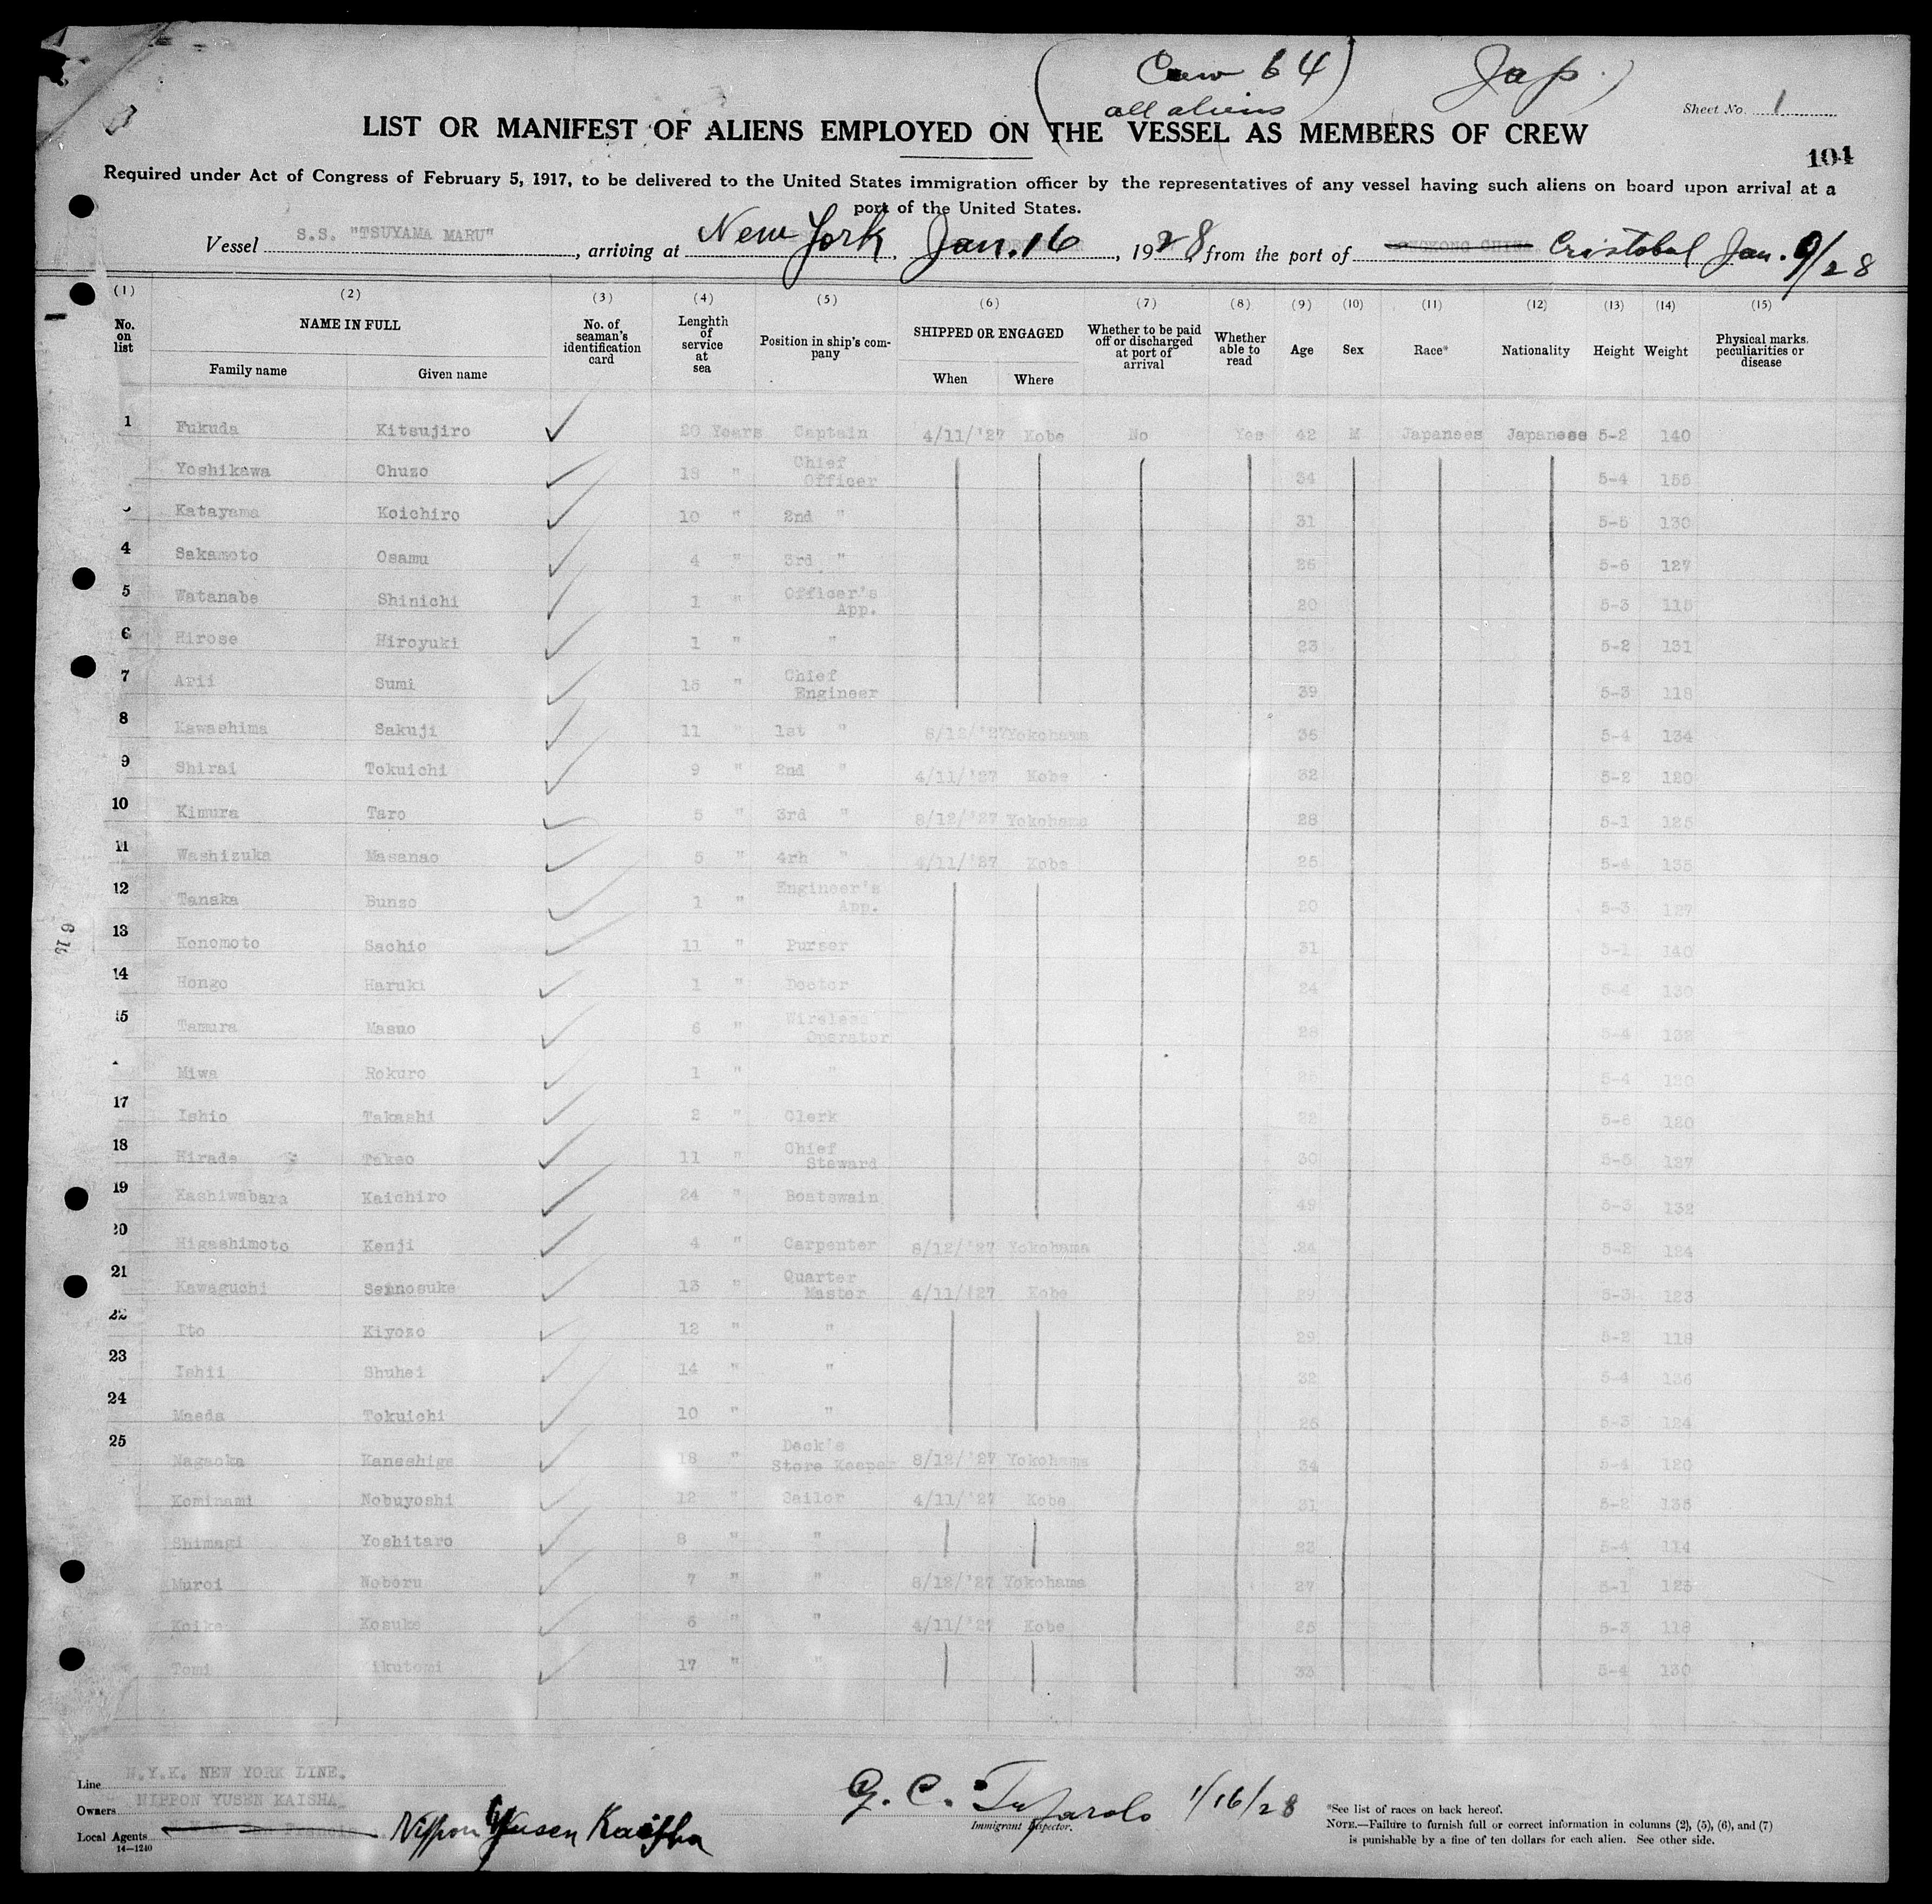 (Crew 64) Jap.
all aliens
Sheet No. 1
LIST OR MANIFEST OF ALIENS EMPLOYED ON THE VESSEL AS MEMBERS OF CREW
104
Required under Act of Congress of February 5, 1917, to be delivered to the United States immigration officer by the representatives of any vessel having such aliens on board upon arrival at a
port of the United States.
Vessel S.S. "TSUYAMA MARU", arriving at New York, Jan. 16, 1928, from the port of HONGKONG CHINA. Cristobal Jan. 9/28
(1) (2) (3) (4) (5) (6) (7) (8) (9) (10) (11) (12) (13) (14) (15)
No. on list NAME IN FULL Family name Given name No. of seaman's identification card Lenghth of service at sea Position in ship's company SHIPPED OR ENGAGED When Where Whether to be paid off or discharged at port of arrival Whether able to read Age Sex Race* Nationality Height Weight Physical marks. peculiarities or disease
1 Fukuda Kitsujiro 20 Years Captain 4/11/'27 Kobe No Yes 42 M Japanses Japanese 5-2 140
Yoshikawa Chuzo 18 " Chief Officer 34 5-4 155
Katayama Koichiro 10 " 2nd " 31 5-5 130
4 Sakamoto Osamu 4 " 3rd " 26 5-6 127
5 Watanabe Shinichi 1 " Officer's App. 20 5-3 115
6 Hirose Hiroyuki 1 " " 23 5-2 131
7 Arii Sumi 15 " Chief Engineer 39 5-3 118
8 Kawashima Sakuji 11 " 1st " 8/12/'27 Yokohama 36 5-4 134
9 Shirai Tokuichi 9 " 2nd " 4/11/'27 Kobe 32 5-2 120
10 Kimura Taro 5 " 3rd " 8/12/'27 Yokohama 28 5-1 125
11 Washizuka Masanao 5 " 4rh " 4/11/'27 Kobe 25 5-4 135
12 Tanaka Bunzo 1 " Engineer's App. 20 5-3 127
13 Konomoto Sachio 11 " Purser 31 5-1 140
14 Hongo Haruki 1 " Doctor 24 5-4 130
15 Tamura Masuo 6 " Wireless Operator 28 5-4 132
Miwa Rokuro 1 " " 5-4 120
17 Ishio Takashi 2 " Clerk 22 5-6 120
18 Hirade Takeo 11 " Chief Steward 30 5-5 127
19 Kashiwabara Kaichiro 24 " Boatswain 49 5-3 132
20 Higashimoto Kenji 4 " Carpenter 8/12/'27 Yokohama 24 5-2 124
21 Kawaguchi Seinosuke 13 " Quarter Master 4/11/'27 Kobe 29 5-3 123
22 Ito Kiyozo 12 " " 29 5-2 118
23 Ishii Shuhei 14 " " 32 5-4 136
24 Maeda Tokuichi 10 " " 26 5-3 124
25 Nagaoka Kaneshige 18 " Deck's Store Keeper 8/12/'27 Yokohama 34 5-4 120
Kominami Nobuyoshi 12 " Sailor 4/11/'27 Kobe 31 5-2 135
Shimagi Yoshitaro 8 " " 22 5-4 114
Muroi Noboru 7 " " 8/12/'27 Yokohama 27 5-1 123
Koike Kosuke 6 " " 4/11/'27 Kobe 25 5-3 118
Tomi ikutomi 17 " " 33 5-4 130
Line N.Y.K. NEW YORK LINE.
Owners NIPPON YUSEN KAISHA
Local Agents Nippon Yusen Kaisha
14-1240
G. C. 1/16/28
Immigrant Inspector.
*See list of races on back hereof.
NOTE.—Failure to furnish full or correct information in columns (2), (5), (6), and (7)
is punishable by a fine of ten dollars for each alien. See other side.